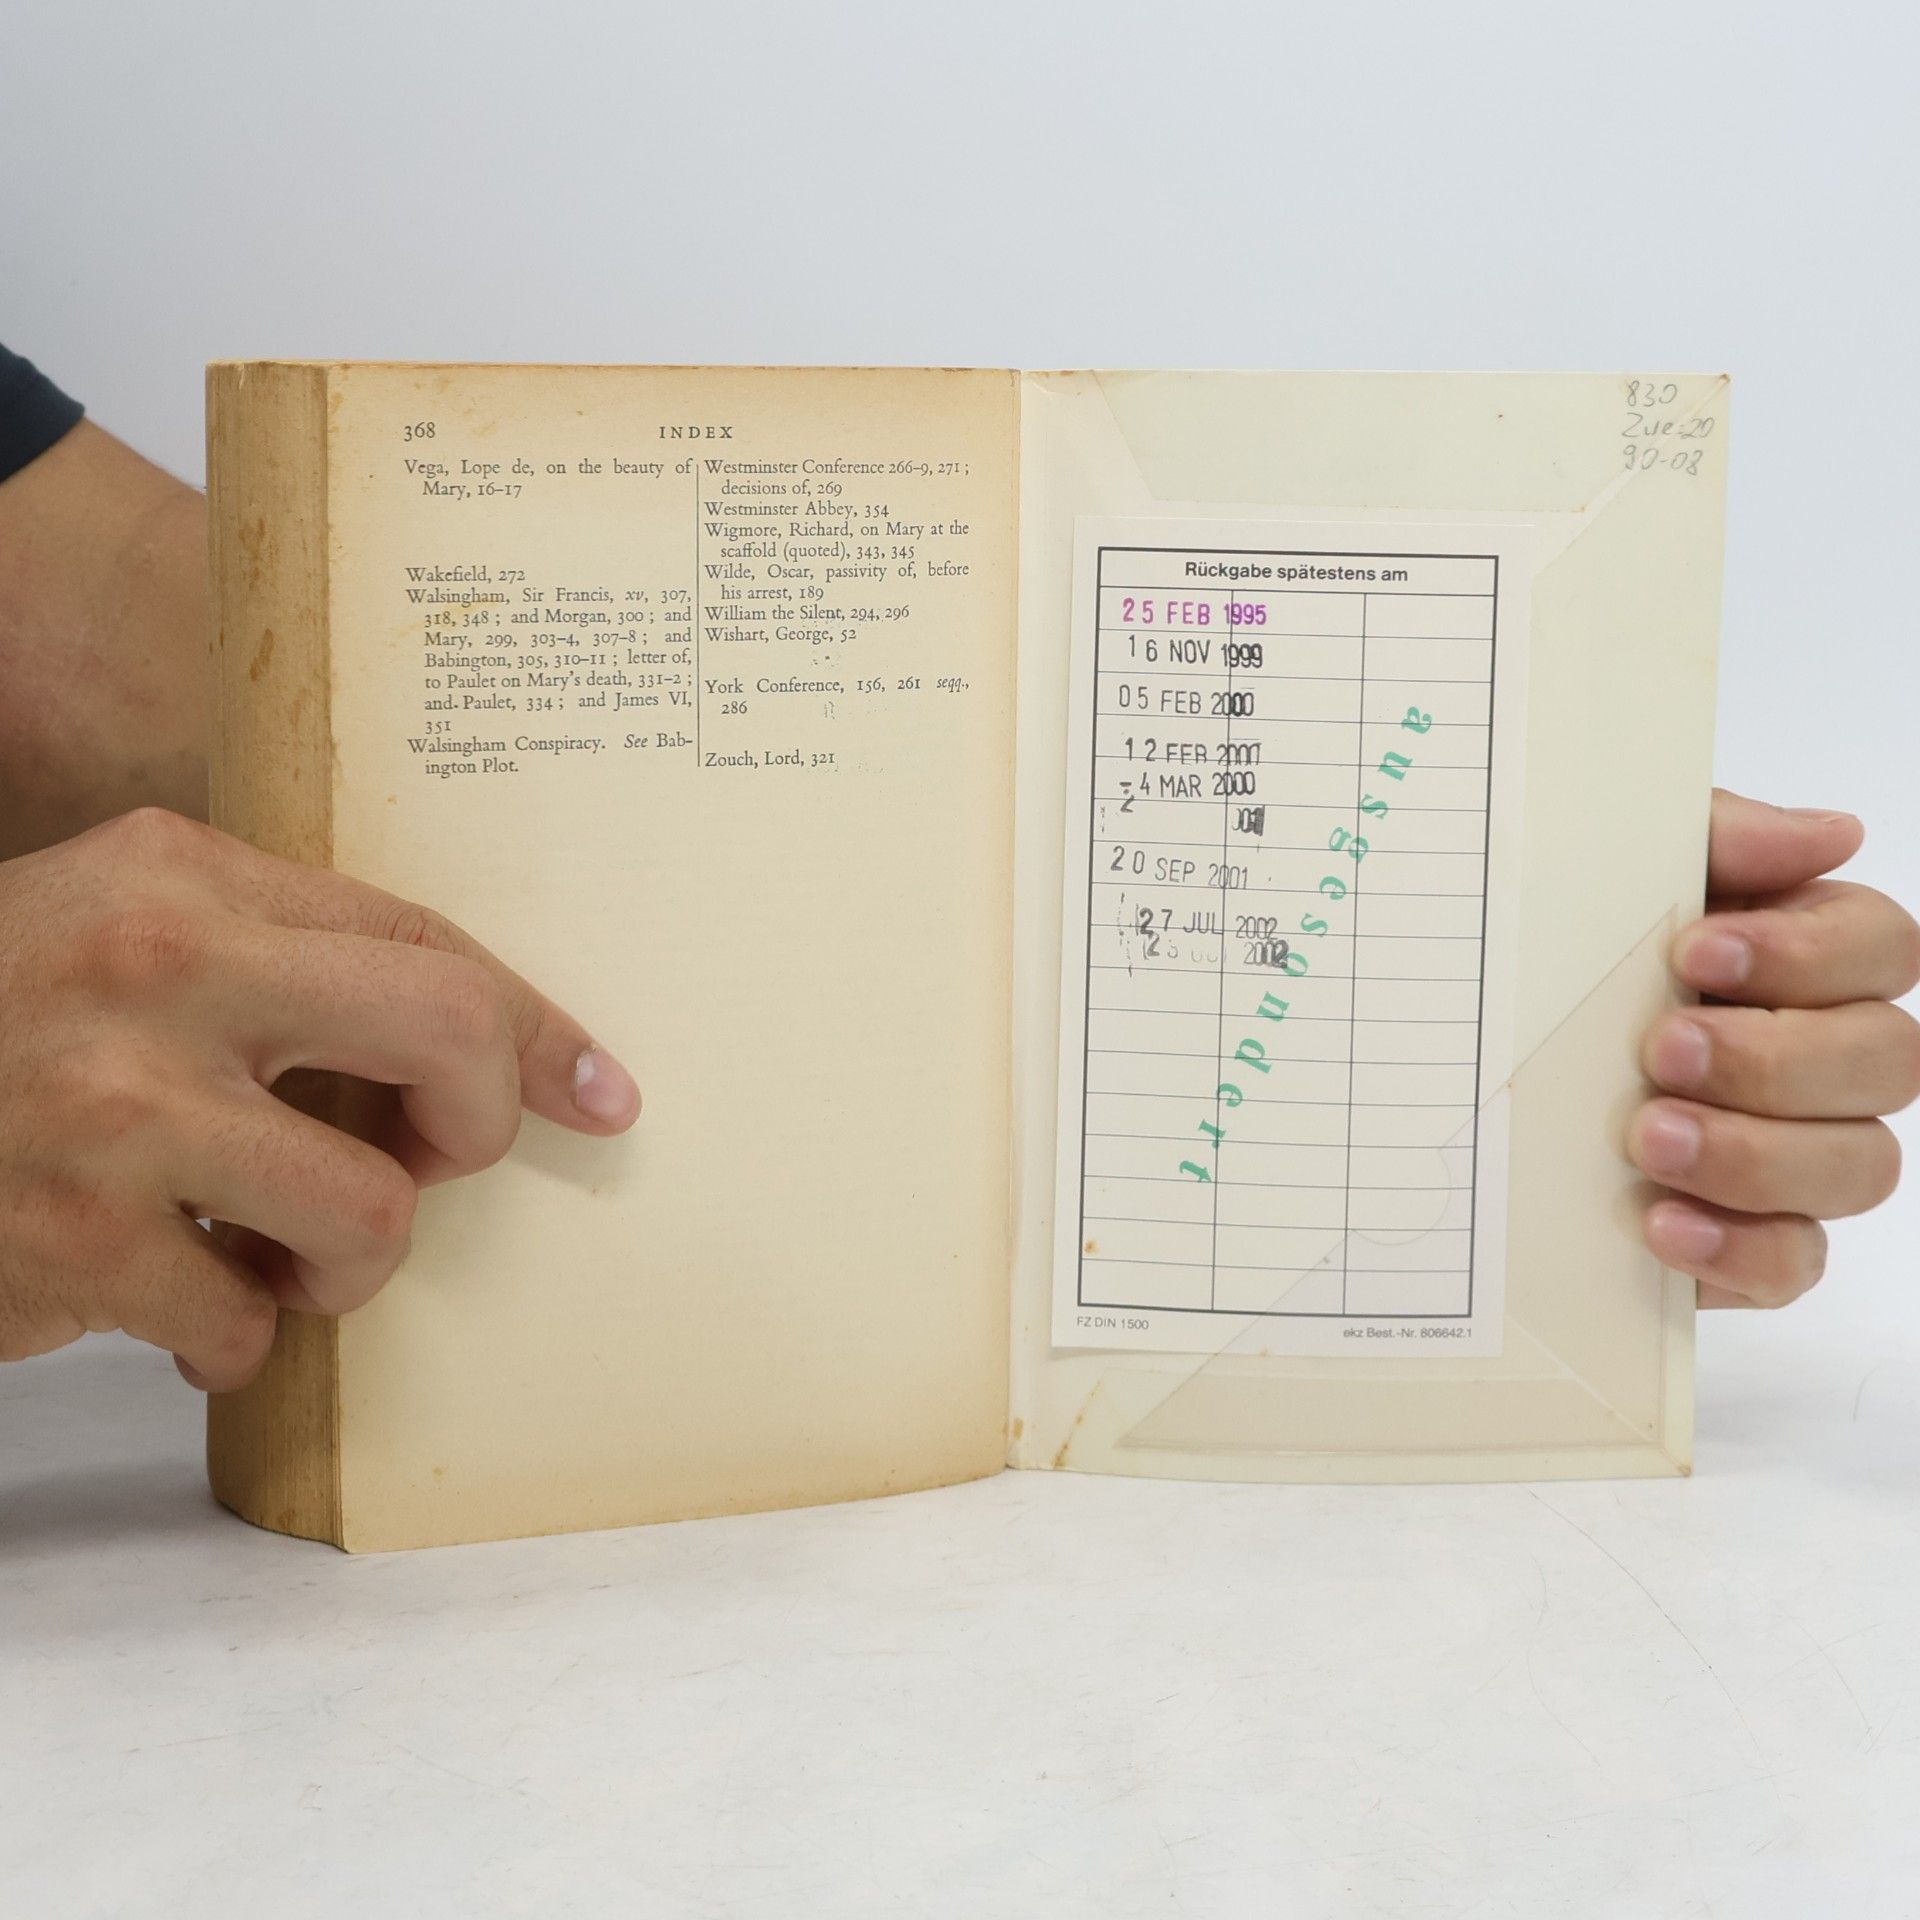 368
INDEX
Vega, Lope de, on the beauty of
Mary, 16–17
Wakefield, 272
Walsingham, Sir Francis, xv, 307,
318, 348 ; and Morgan, 300 ; and
Mary, 299, 303–4, 307–8 ; and
Babington, 305, 310–11 ; letter of,
to Paulet on Mary's death, 331–2 ;
and Paulet, 334 ; and James VI,
351
Walsingham Conspiracy. See Bab-
ington Plot.
Westminster Conference 266–9, 271 ;
decisions of, 269
Westminster Abbey, 354
Wigmore, Richard, on Mary at the
scaffold (quoted), 343, 345
Wilde, Oscar, passivity of, before
his arrest, 189
William the Silent, 294, 296
Wishart, George, 52
York Conference, 156, 261 seqq.,
286
Zouch, Lord, 321
830
Zue=20
90-08
Rückgabe spätestens am
25 FEB 1995
16 NOV 1999
05 FEB 2000
12 FEB 2000
4 MAR 2000
20 SEP 2001
27 JUL 2002
2002
ausgesondert
FZ DIN 1500
ekz Best.-Nr. 806642.1